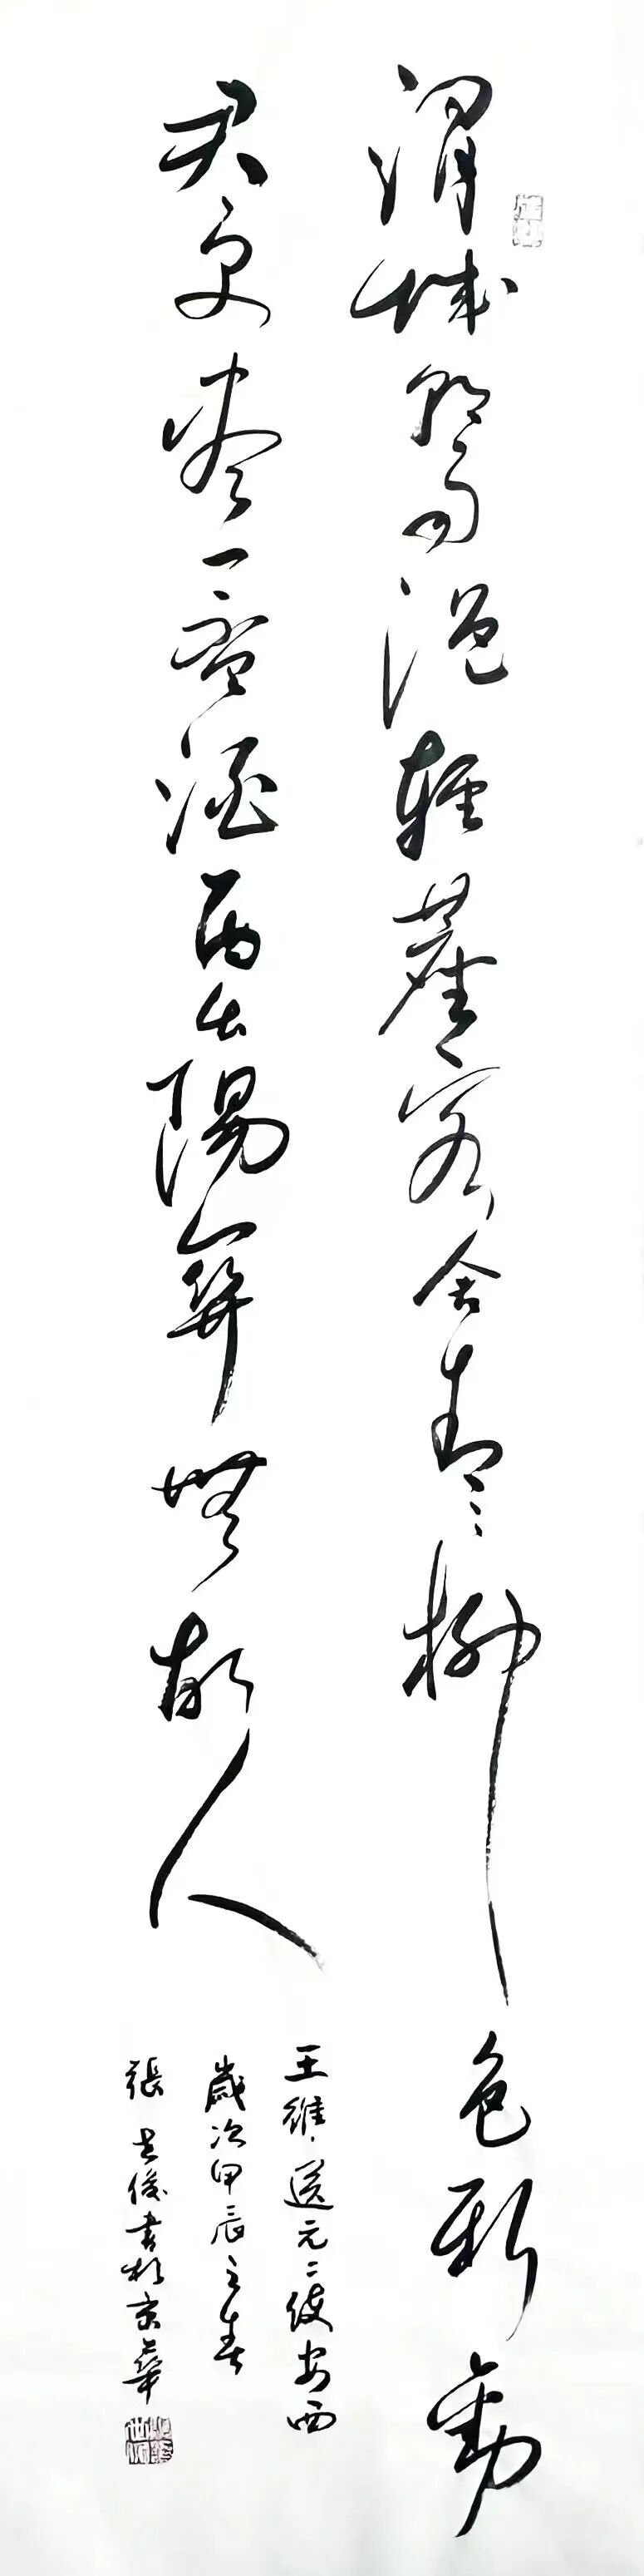 渭城朝雨浥輕塵客舍青々柳色新勸
君更盡一盃酒西出陽關無故人
王維送元二使安西
歲次甲辰之春
張俊書於京華